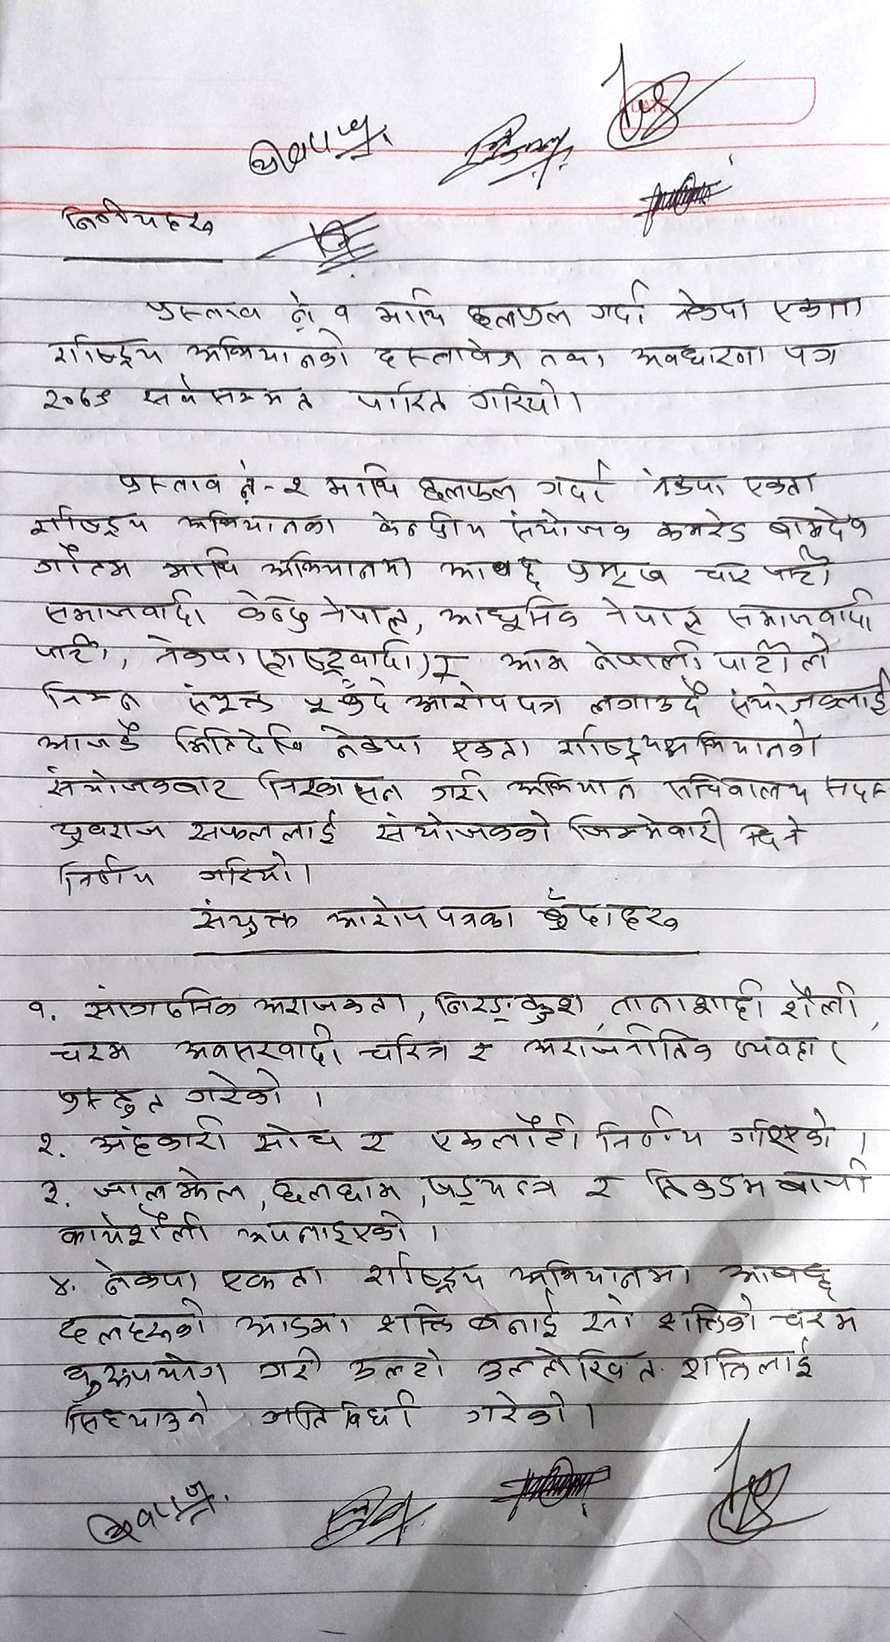 निर्णयहरू
प्रस्ताव नं १ माथि छलफल गर्दा नेकपा एकता
राष्ट्रिय अभियानको दस्तावेज तथा अवधारणा पत्र
२०७९ सर्वसम्मत पारित गरियो।
प्रस्ताव नं-२ माथि छलफल गर्दा नेकपा एकता
राष्ट्रिय अभियानका केन्द्रीय संयोजक कमरेड बामदेव
गौतम माथि अभियानमा आबद्ध प्रमुख चार पार्टी
समाजवादी केन्द्र नेपाल, आधुनिक नेपाल समाजवादी
पार्टी, नेकपा (राष्ट्रवादी) र आम नेपाली पार्टीले
निम्न संयुक्त बुँदे आरोपपत्र लगाउदै संयोजकलाई
आजकै मितिदेखि नेकपा एकता राष्ट्रिय अभियानको
संयोजकबाट निस्कासन गरी अभियान सचिवालय सदस्य
युवराज सफललाई संयोजकको जिम्मेवारी दिने
निर्णय गरियो।
संयुक्त आरोप पत्रका बुँदाहरू
१. सांगठनिक अराजकता, निरङ्कुश, तानाशाही शैली,
चरम अवसरवादी चरित्र र अराजनीतिक व्यवहार
प्रस्तुत गरेको ।
२. अंहकारी सोच र एकलौटी निर्णय गरिएको ।
३. जालझेल, छलछाम, षड्यन्त्र र तिकडमबाजी
कार्यशैली अपनाइएको ।
४. नेकपा एकता राष्ट्रिय अभियानमा आबद्ध
दलहरूको आडमा शक्ति बनाई सो शक्तिको चरम
दुरूपयोग गरी उल्टो उल्लेखित शक्तिलाई
सिध्याउने गतिविधी गरेको।